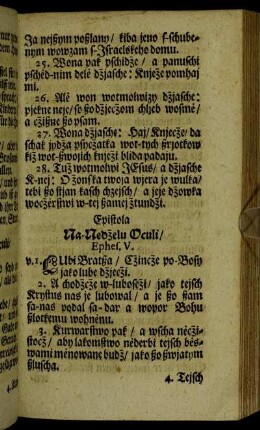 Ja nejßym poßlany/ kiba jeno f-schube-
nym wowzam f-Jsraelskehe domu.
25. Wona pak pschidże/ a panuschi
pschéd-nim delé dżasche: Knježe pomhaj
mi.
26. Alé won wotmolwizy dżjasche:
pjekne nejo/ so dożjeczom chleb wosmé/
a cżißno ßo psam.
27. Wona dżjasche: Haj/ Knjecze/ da
schak jydża pßycżatka wot-tych ßrjotkow
kiż wot-ßwojich knjezi blida padaju.
28. Tuż wotmolwi JEsus/ a dżjasche
K-nej: O żonska twoja wjera je wulka/
tebi ßo stjan kaßch chzejsch/ a jeje dżowka
woczerstwi w-tej ßamej stundżi.
Epistola
Na-Nedżelu Oculi/
Ephes. V.
v.1. LUbi Bratßa/ Cżincże po-Bosy
jako lube dżjeczi.
2. A chodżcże w-luboseżi/ jako tejsch
Krystus nas je lubowal/ a je ßo ßam
sa-nas podal sa-dar a wopor Bohu
ßlotkemu wohnénu.
3. Kurwarstwo pak/ a wscha néczi-
stocż/ aby lakomstwo néderbi tejsch bés-
wami ménowane budż/ jako ßo ßwjatym
ßluscha.
4. Tejsch